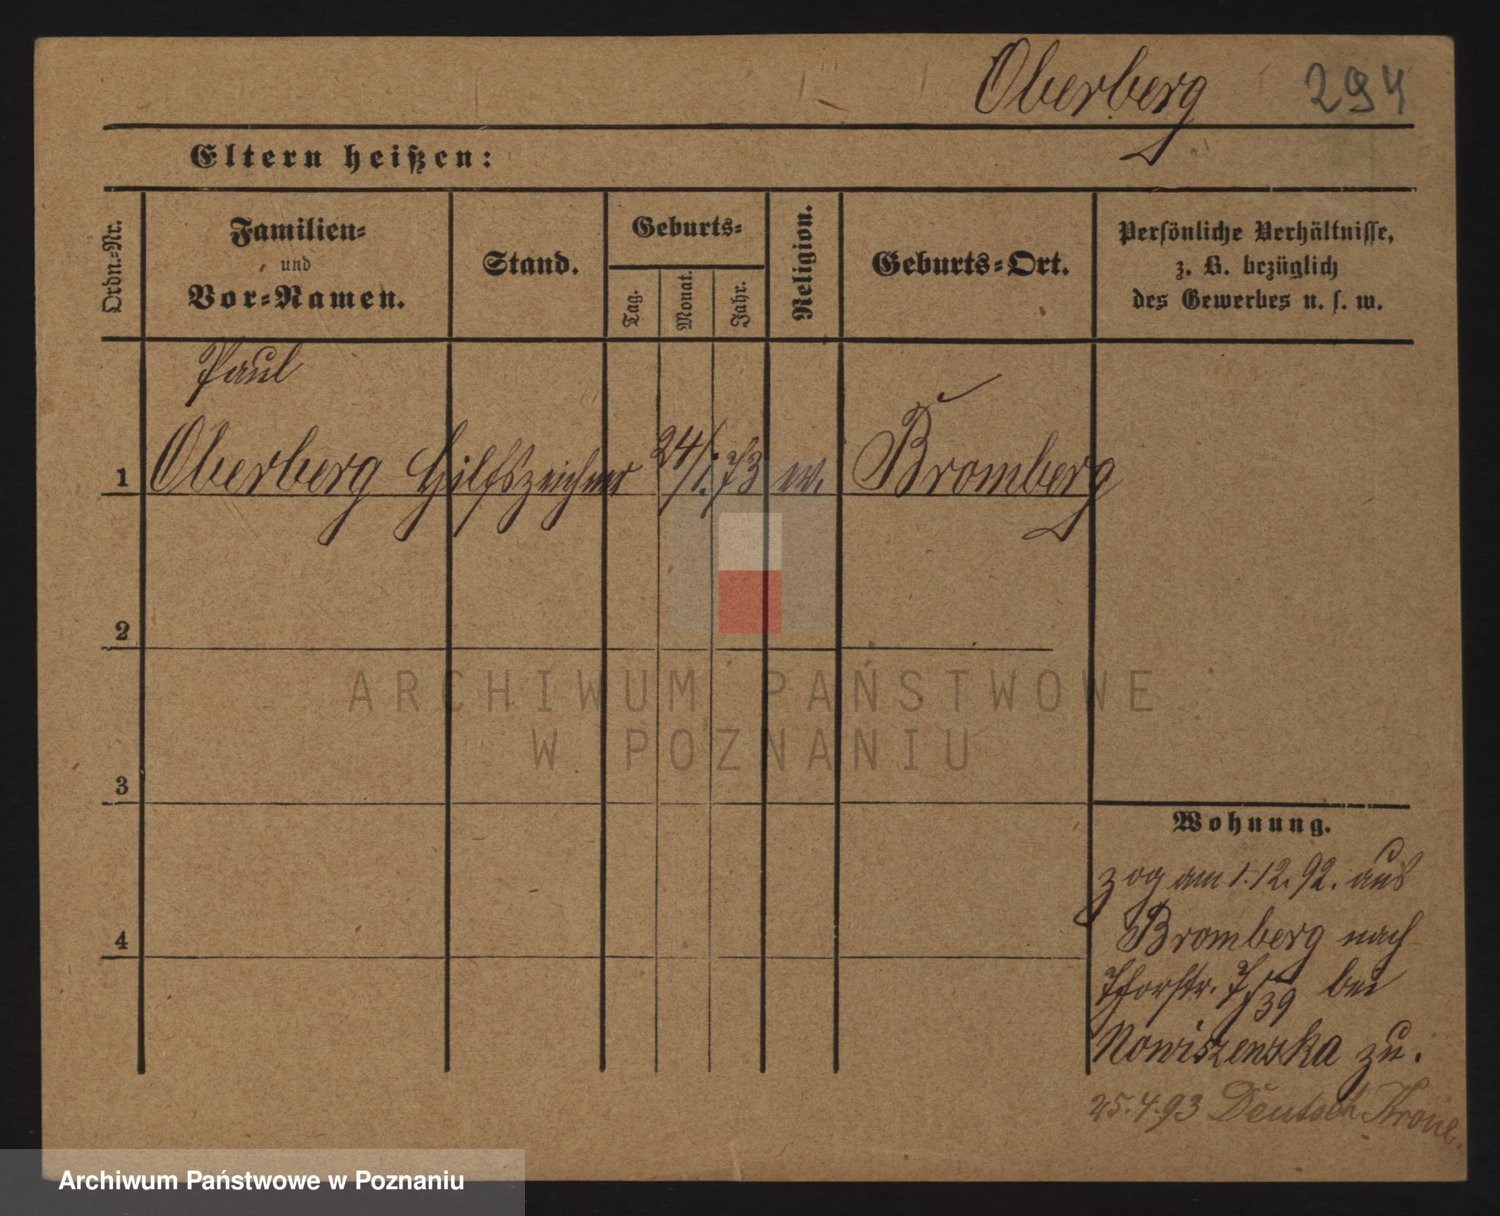 Oberberg 294
Eltern heißen:
Ordn.-Nr.
Familien-
und
Vor-Namen.
Stand.
Geburts-
Tag.
Monat.
Jahr.
Religion.
Geburts-Ort.
Persönliche Verhältnisse,
z. B. bezüglich
des Gewerbes u. s. w.
Paul
1 Oberberg Hilfszeichner 24/1. 73 Bromberg
2
ARCHIWUM PAŃSTWOWE
W POZNANIU
3
Wohnung.
zog am 1.12.92. aus
4 Bromberg nach
bei
Nowiszenska zu.
25.4.93 Deutsch Krone.
Archiwum Państwowe w Poznaniu